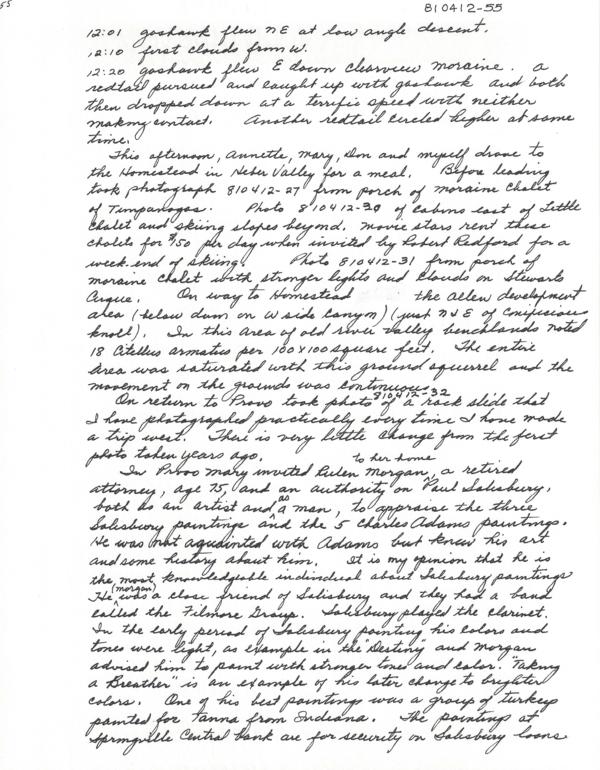 55
810412-55
12:01 goshawk flew NE at low angle descent.
12:10 first clouds from W.
12:20 goshawk flew E down Clearview moraine. A
redtail pursued and caught up with goshawk and both
then dropped down at a terrific speed with neither
making contact. Another redtail circled higher at same
time.
This afternoon, Annette, Mary, Don and myself drove to
the Homestead in Heber Valley for a meal. Before leaving
took photograph 810412-27 from porch of moraine chalet
of Timpanogas. Photo 810412-30 of cabins east of Little
Chalet and skiing slopes beyond. Movie stars rent these
chalets for $150 per day when invited by Robert Redford for a
week end of skiing. Photo 810412-31 from porch of
moraine chalet with stronger lights and clouds on Stewarts
Cirque. On way to Homestead the Allen development
area (below dam on W side canyon) (just N & E of coniferous
knoll). In this area of old river valley benchlands noted
18 Citellus armatus per 100 x 100 square feet. The entire
area was saturated with this ground squirrel and the
movement on the grounds was continuous.
On return to Provo took photo 810412-32 of a rock slide that
I have photographed practically every time I have made
a trip west. There is very little change from the first
photo taken years ago.
In Provo Mary invited Morgan, to her home a retired
attorney, age 75, and an authority on Paul Salisbury,
both as an artist and as a man, to appraise the three
Salisbury paintings and the 5 Charles Adams paintings.
He was not aquainted with Adams but knew his art
and some history about him. It is my opinion that he is
the most knowledgable individual about Salisbury paintings
He (Morgan) was a close friend of Salisbury and they had a band
called the Filmore Group. Salisbury played the clarinet.
In the early period of Salisbury painting his colors and
tones were light, as example in the "Destiny" and Morgan
advised him to paint with stronger tones and color. "Taking
a Breather" is an example of his later change to brighter
colors. One of his best paintings was a group of turkeys
painted for Tanna from Indiana. The paintings at
Springville Central Bank are for security on Salisbury loans